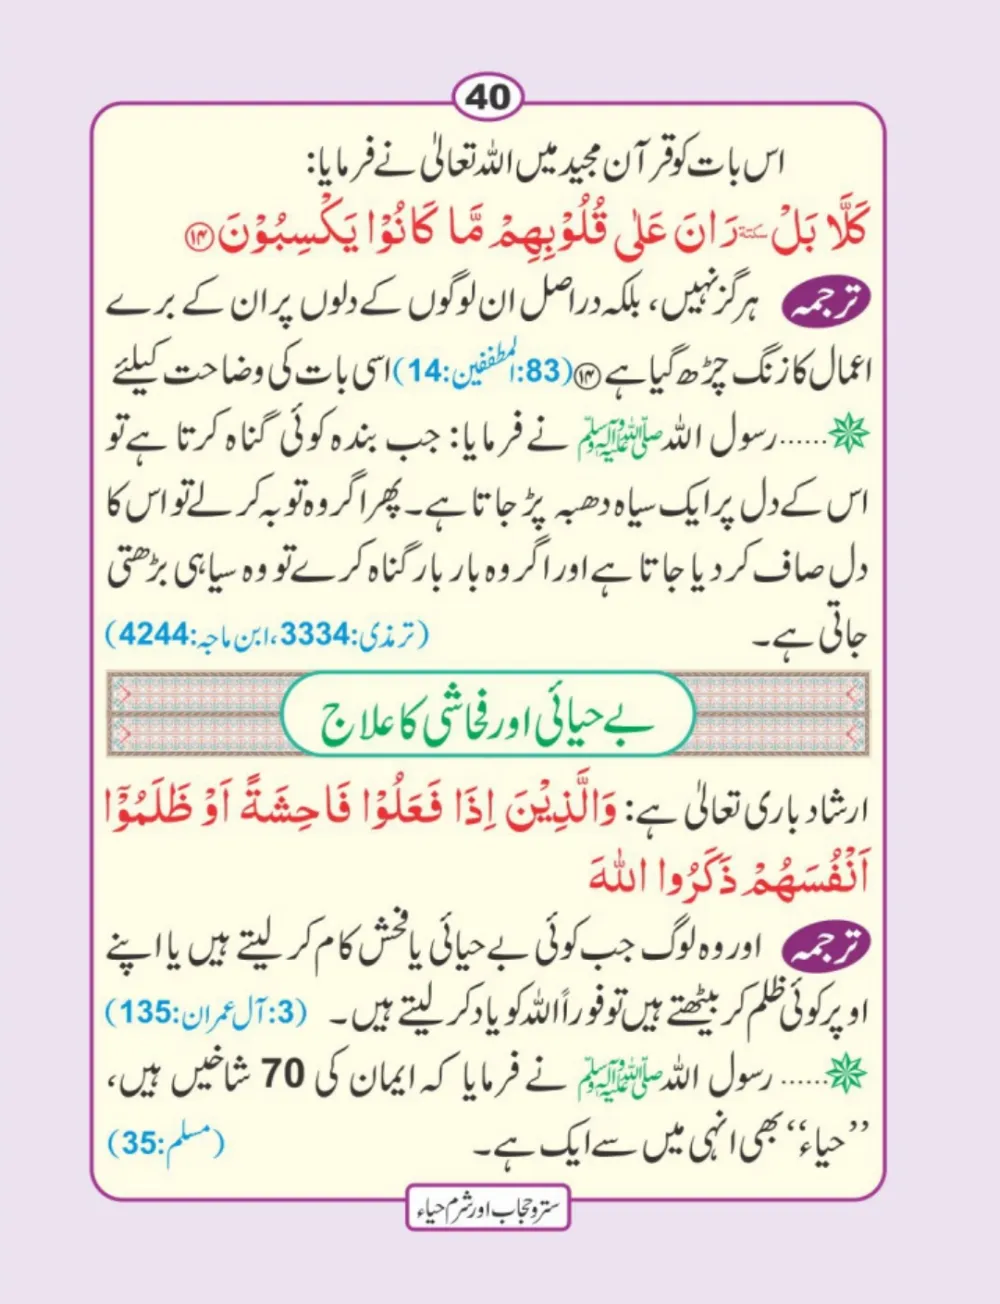 40
اس بات کو قرآن مجید میں اللہ تعالیٰ نے فرمایا:
كَلَّا بَلْ سكتة رَانَ عَلٰى قُلُوْبِهِمْ مَّا كَانُوْا يَكْسِبُوْنَ ۝۱۴
ترجمہ ہرگز نہیں، بلکہ دراصل ان لوگوں کے دلوں پر ان کے برے
اعمال کا زنگ چڑھ گیا ہے ۝۱۴ (83:المطففین:14) اسی بات کی وضاحت کیلئے
......رسول اللہ ﷺ نے فرمایا: جب بندہ کوئی گناہ کرتا ہے تو
اس کے دل پر ایک سیاہ دھبہ پڑ جاتا ہے۔ پھر اگر وہ توبہ کر لے تو اس کا
دل صاف کر دیا جاتا ہے اور اگر وہ بار بار گناہ کرے تو وہ سیاہی بڑھتی
جاتی ہے۔ (ترمذی:3334، ابن ماجہ:4244)
بے حیائی اور فحاشی کا علاج
ارشاد باری تعالیٰ ہے: وَالَّذِيْنَ اِذَا فَعَلُوْا فَاحِشَةً اَوْ ظَلَمُوْٓا
اَنْفُسَهُمْ ذَكَرُوا اللهَ
ترجمہ اور وہ لوگ جب کوئی بے حیائی یا فحش کام کر لیتے ہیں یا اپنے
اوپر کوئی ظلم کر بیٹھتے ہیں تو فوراً اللہ کو یاد کر لیتے ہیں۔ (3:آل عمران:135)
......رسول اللہ ﷺ نے فرمایا کہ ایمان کی 70 شاخیں ہیں،
’’حیاء‘‘ بھی انہی میں سے ایک ہے۔ (مسلم:35)
ستر و حجاب اور شرم حیاء